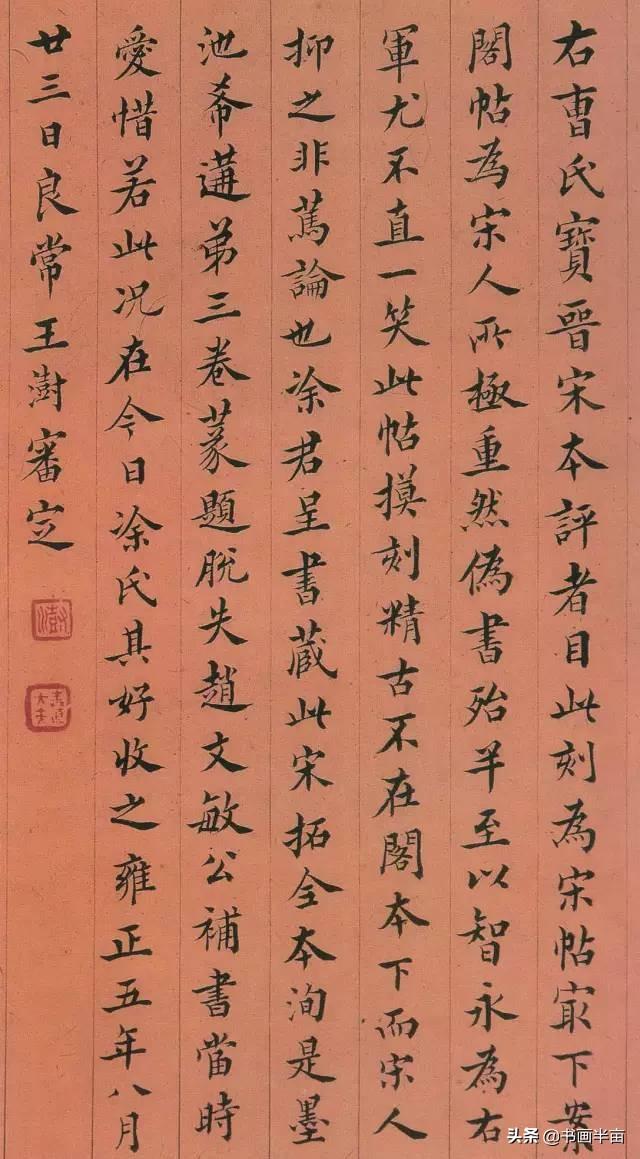 右曹氏寶晉宋本評者目此刻為宋帖冣下案
閣帖為宋人所極重然偽書殆半至以智永為右
軍尤不直一笑此帖摸刻精古不在閣本下而宋人
抑之非篤論也涂君呈書藏此宋拓全本洵是墨
池希遘弟三卷篆題脫失趙文敏公補書當時
愛惜若此况在今日涂氏其好收之雍正五年八月
廿三日良常王澍審定
澍
頭条 @书画半亩